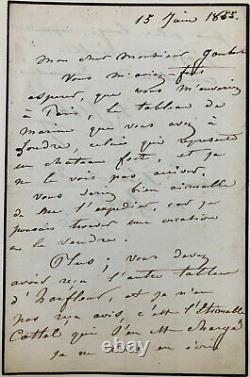 15 Juin 1865.
Mon cher Monsieur
Vous m'aviez fait
espérer, que vous m'enverriez
à Paris, le tableau de
marine que vous avez à
Londre, celui qui représente
un chateau fort, et je
ne le vois pas arriver.
vous seriez bien aimable
de me l'expédier, car je
pensais trouver une occasion
de le vendre.
Plus; vous devez
avoir reçu l'autre tableau
d'Honfleur, et je n'en
pas reçu avis, c'est
que j'en
je ne
© ebay.com